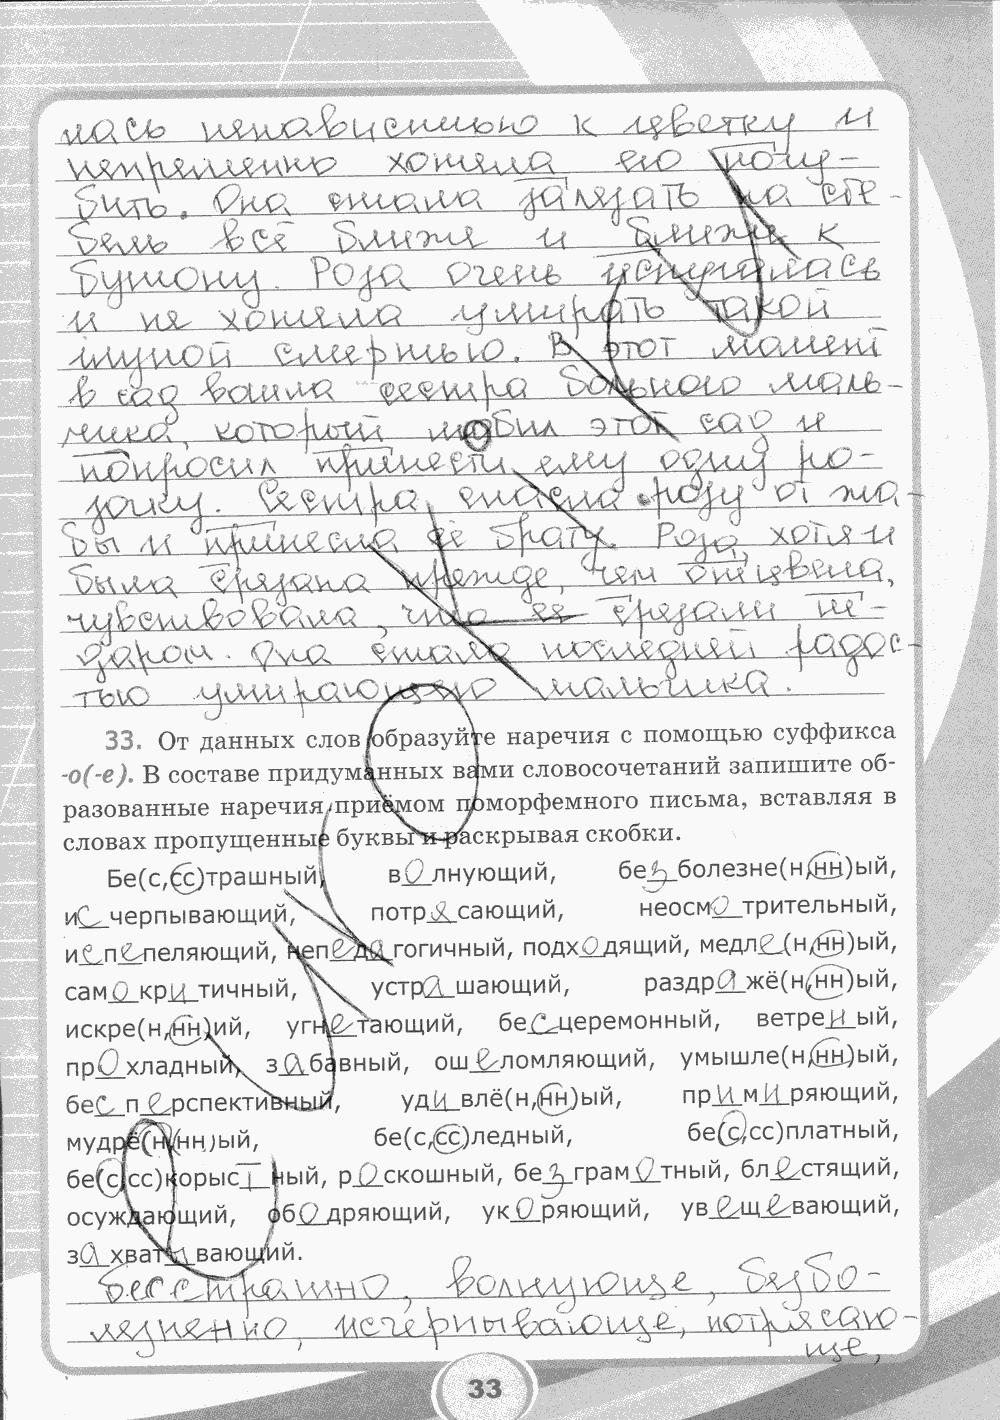 лась ненавистью к цветку и
непременно хотела его погу-
бить. Она стала залезать на сте-
бель всё ближе и ближе к
бутону. Роза очень испугалась
и не хотела умирать такой
жуткой смертью. В этот момент
в сад вошла сестра больного маль-
чика, который любил этот сад и
попросил принести ему одну ро-
зочку. Сестра спасла розу от жа-
бы и принесла её брату. Роза, хотя и
была срезана прежде, чем отцвела,
чувствовала, что её срезали не-
даром. Она стала последней радос-
тью умирающего мальчика.
33. От данных слов образуйте наречия с помощью суффикса
-о(-е). В составе придуманных вами словосочетаний запишите об-
разованные наречия приёмом поморфемного письма, вставляя в
словах пропущенные буквы и раскрывая скобки.
Бе(с,сс)трашный, волнующий, безболезне(н,нн)ый,
исчерпывающий, потрясающий, неосмотрительный,
испепеляющий, непедагогичный, подходящий, медле(н,нн)ый,
самокритичный, устрашающий, раздражё(н,нн)ый,
искре(н,нн)ий, угнетающий, бесцеремонный, ветреный,
прохладный, забавный, ошеломляющий, умышле(н,нн)ый,
бесперспективный, удивлё(н,нн)ый, примиряющий,
мудрё(н,нн)ый, бе(с,сс)ледный, бе(с,сс)платный,
бе(с,сс)корыстный, роскошный, безграмотный, блестящий,
осуждающий, ободряющий, укоряющий, увещевающий,
захватывающий.
бесстрашно, волнующе, безбо-
лезненно, исчерпывающе, потрясаю-
ще,
33